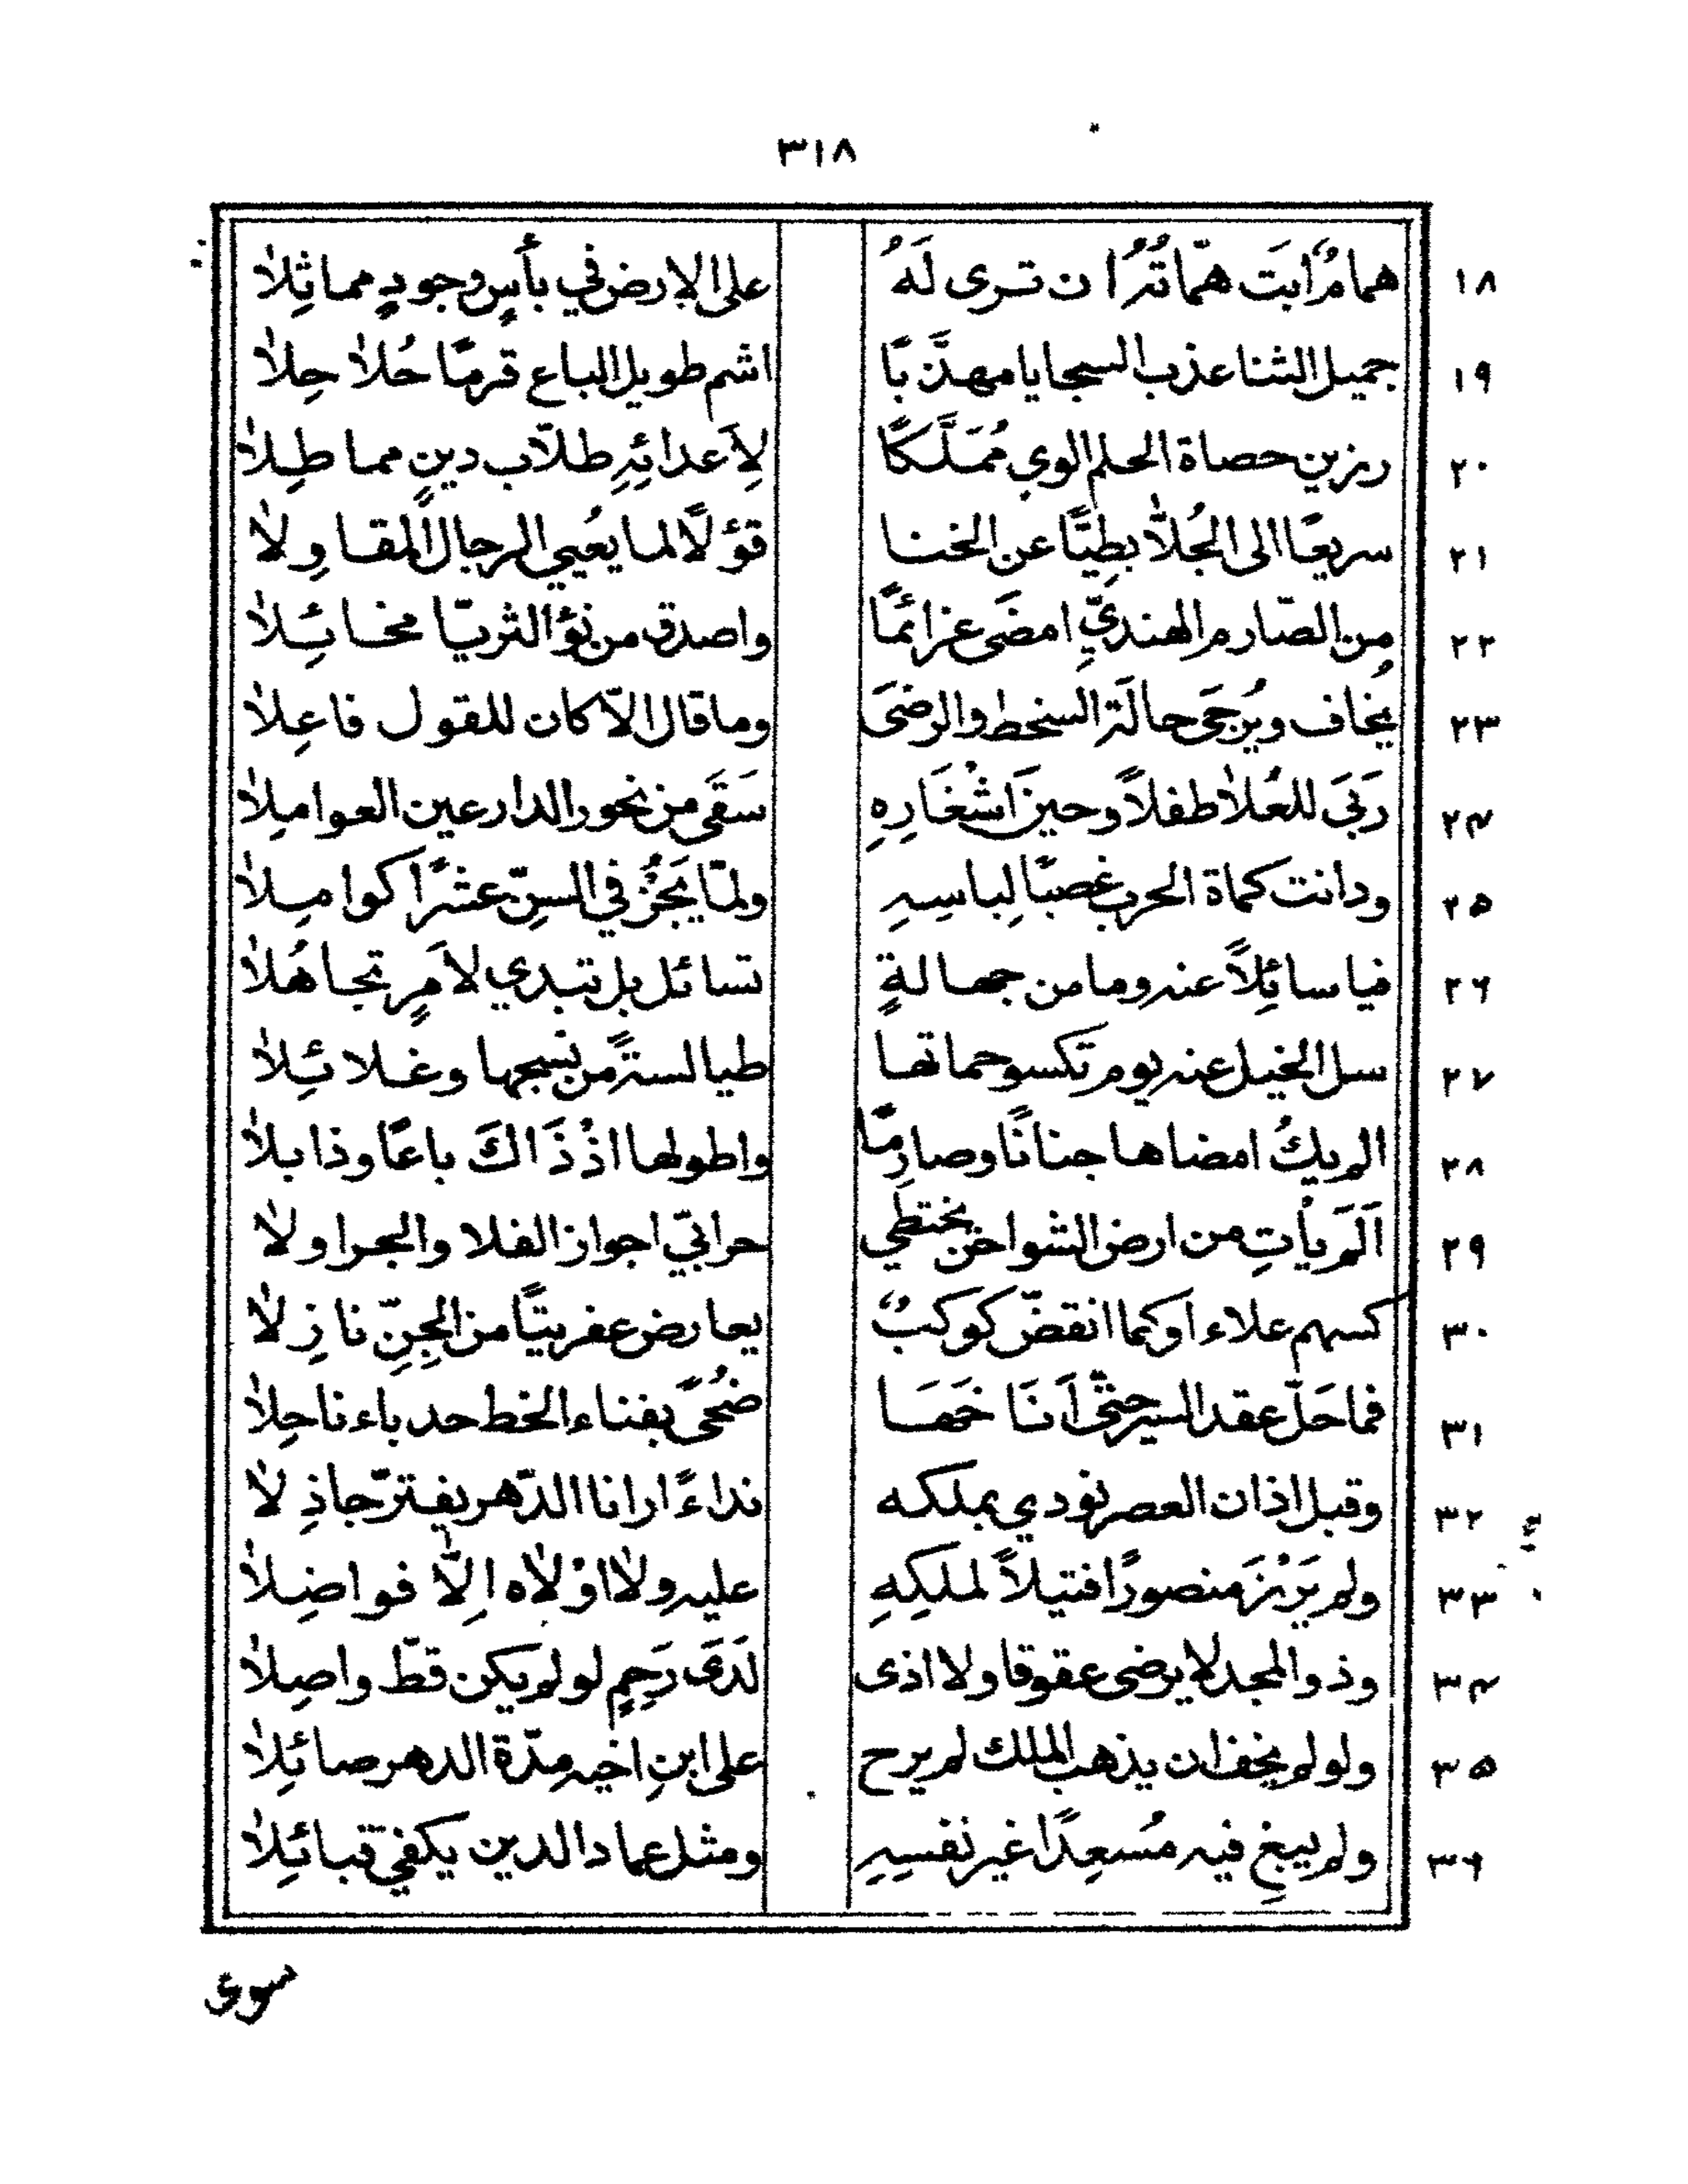 ٣١٨
١٨ همامٌ ابَت همّاتُهُ ان تـرى لَهُ على الارض في بأسٍ وجودٍ مماثِلاً
١٩ جميل الثنا عذب السجايا مهذّبًا اشم طويل الباع قرمًا حُلاً حِلاً
٢٠ رزين حصاة الحلم الوي مُمَلَّكًا لِأَعدائِهِ طلّاب دينٍ مماطِلاً
٢١ سريعًا الى الجُلاّ بطِيًّا عن الخنا قؤلًا لما يعُيي الرجال المقاوِلا
٢٢ من الصّارم الهنديِّ امضَى عزائمًا واصدق من نؤ الثريّا مخائِلاً
٢٣ يُخاف ويُرجَى حالَة السخط والرضَى وما قال الاّ كان للقول فاعِلاً
٢٤ رَبَى للعُلاٰ طفلاً وحين اَثْغَارِهِ سَقَى من نحور الدارعين العوامِلاً
٢٥ ودانت كماة الحرب غصبًا لِباسِهِ ولمّا يَجُزْ في السِنّ عشرًا كوامِلاً
٢٦ فيا سائِلاً عنه وما من جهالةٍ تسائل بل تبدي لأَمرٍ تجاهُلاً
٢٧ سل الخيل عنه يوم تكسو حماتها طيالسةً من نسجها وغلائِلاً
٢٨ الم يكُ امضاها جنانًا وصارِمًا واطولها اذْ ذَاكَ باعًا وذابلاً
٢٩ اَلَم يأتِ من ارض الشواخن يختطِي حرابيّ اجواز الفلا والجراولاً
٣٠ كسهم علاء اوكما انقضّ كوكبٌ يعارض عفريتًا من الجِنِّ نازِلاً
٣١ فما حَلّ عقد السير حتّى اَنَاخَهَا ضُحًى بفناء الخط حدباء ناحِلاً
٣٢ وقبل اذان العصر نودي بملكه نداءً ارانا الدّهر يفترّ جاذِلاً
٣٣ ولم يَرْزَ منصورًا فتيلاً لملكِهِ عليه ولا اوْلاٰه اِلّا فواضِلاً
٣٤ وذو المجد لا يرضى عقوقا ولا اذى لَدَى رَحِمٍ لو لم يكن قطّ واصِلاً
٣٥ ولو لم يخف ان يذهب الملك لم يرح على ابنِ اخيه مدّة الدهر صائِلاً
٣٦ ولم يبغِ فيه مُسعِدًا غير نفسِهِ ومثل عماد الدين يكفي قبائِلاً
سوى